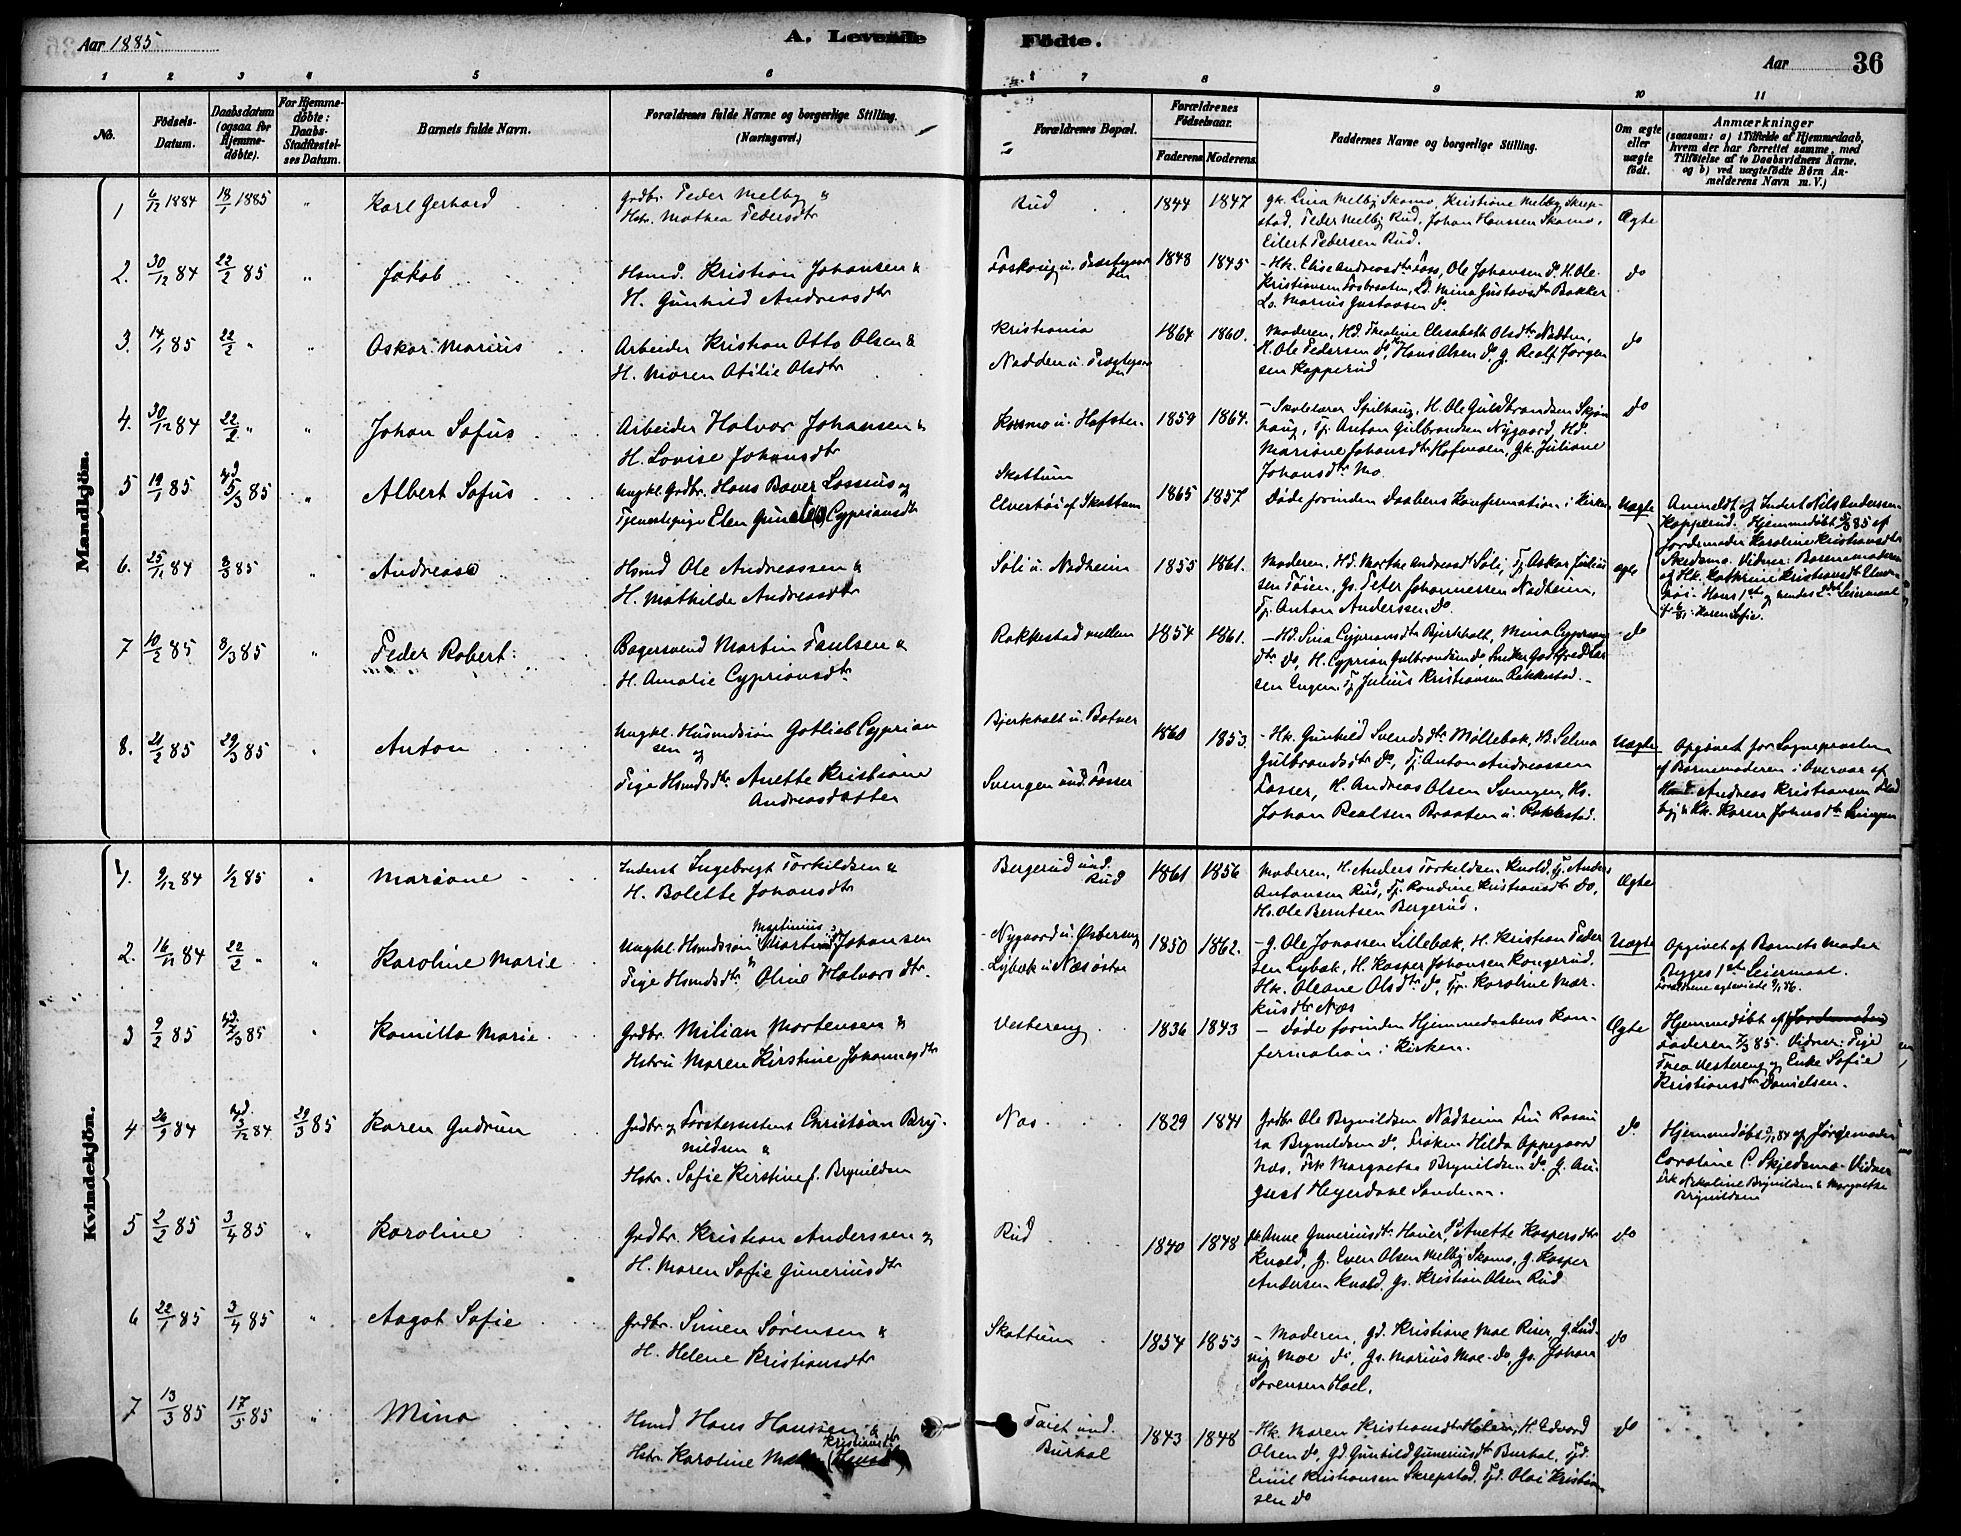 Aar 1885
A. Levende Födte.
Aar 36
1 2 3 4 5 6 7 8 9 10 11
No.
Födsels-Datum.
Daabsdatum (ogsaa for Hjemmedøbte).
For Hjemmedøbte: Daabs-Stadfæstelses Datum.
Barnets fulde Navn.
Forældrenes fulde Navne og borgerlige Stilling. (Næringsvei.)
Forældrenes Bopæl.
Forældrenes Födselsaar.
Faderens Moderens
Faddernes Navne og borgerlige Stilling.
Om ægte eller uægte født.
Anmærkninger
(saasom: a) i Tilfælde af Hjemmedaab,
hvem der har forrettet samme, med
Tilføielse af to Daabsvidners Navne.
og b) ved uægtefødte Börn Anmelderens Navn m. V.)
Mandkjön.
1 6/12 1884 18/1 1885 " Karl Gerhard
Grdbr. Peder Melby &
Hstr. Mathea Pedersdtr
Rud 1844 1847
gk. Lina Melby Skamo, Kristiane Melby Skrepstad, Peder Melby Rud, Johan Hanssen Skamo,
Eilert Pedersen Rud.
Ægte
2. 30/12 84 22/2 85 " Jakob
Hsmd. Kristian Johansen &
H. Gunhild Andreasdtr
1848 1845
- Hk. Elise Andreasdtr Foss, Ole Johansen do. H. Ole
Kristiansen Fosbraaten, Ld. Mina Gustavsdtr Bakker
Ls. Marius Gustavsen do
do
3. 14/1 85 22/2 " " Oskar Marius
Arbeider Kristian Otto Olsen &
H. Maren Otilie Olsdtr
Kristiania
Nadden u. Præstegaarden
1864 1860.
Moderen, Hd. Tholine Elisabeth Olsdtr Nadden,
H. Ole Pedersen do, Hans Olsen do, g. Realf Jørgensen Kopperud
do
4. 30/12 84 22/2 " " Johan Sofus
Arbeider Halvor Johansen &
H. Lovise Johansdtr
Kosmo u. Hafsten 1859 1864.
- Skolelærer Spilhaug, H. Ole Guldbrandsen Skjønhaug, Tj. Anton Gulbrandsen Nygaard, Hd.
Mariane Johansdtr Hofmoen, Gk. Juliane
Johansdtr Mo
do
5 19/1 85 hjd 5/3 85 " Albert Sofus
Ungkl. Grdbr. Hans Baver Lossius og
Tjenestepige Elen Gunela(?) Cypriansdtr
Skattum
Elvertøi af Skattum
1865 1857.
Døde forinden Daabens Konfirmation i Kirken
Uægte
Anmeldt af Inderst Nils Anderssen
Kopperud. Hjemmedøbt 5/3 85 af
Jordemoder Karoline Kristiansdtr
Skedsmo. Vidner: Barnemoderen
og Hk. Kathrine Kristiansdtr Elvertøi. Hans 1ste og hendes 2det Leiermaal
Karen Sofie.
6. 25/11 84 8/3 85 " Andreas
Hsmd Ole Andreassen &
H. Mathilde Andreasdtr
Soli u. Nadheim 1855 1861.
Moderen, Hd. Marthe Andreasdtr Soli, Tj. Oskar Juliussen Toien, Gs. Peter Johannessen Nadheim,
Tj. Anton Anderssen do.
ægte
7 10/2 85 8/3 85 " Peder Robert
Bagersvend Martin Paulsen &
H. Amalie Cypriansdtr
Rakkestad mellem 1854 1861.
- Hd. Lina Cypriansdtr Bjerkholt, Mina Cypriansdtr do, H. Cyprian Gulbrandsen do, Snedker Godtfred Larsen Engen, Tj. Julius Kristiansen Rakkestad. -
do
8. 21/2 85 29/3 85 " Anton
Ungkl. Husmdssøn Gotlieb Cypriansen og
Pige Hsmdsdtr. Anette Kristiane
Andreasdatter
Bjerkholt u. Botner
Svengen und. Fosser
1860 1853.
- Hk. Gunhild Svendsdtr Møllebak, Hd. Selma
Gulbrandsdtr do, Tj. Anton Andreassen
Fosser, H. Andreas Olsen Svengen, Hs.
Johan Realsen Braaten u. Rakkestad.
Uægte
Opgivet for Sognepræsten
af Barnemoderen i Overvær af
Andreas Kristiansen
& Hk. Karen Johnsdtr Svingen
Kvindekjön.
1. 9/12 84 1/2 85 " Mariane
Inderst Ingebregt Torkildsen &
H. Bolette Johansdtr
Bergerud und. Rud 1861 1856
Moderen, H. Anders Torkildsen Knold, Tj. Anders
Antonsen Rud, Tj. Randine Kristiansdtr do,
Hs. Ole Berntsen Bergerud.
Ægte
2. 16/11 84 22/2 " " Karoline Marie
Ungkl. Hsmdssøn Martinius Johansen
Pige Hsmdsdtr. Oline Halvorsdtr.
- Nygaard u. Østereng
- Lybæk u Næs østre
1850 1862.
- g. Ole Jonassen Lillebæk, H. Kristian Pedersen Lybæk, H. Kasper Johansen Kongerud,
Hk. Oleane Olsdtr do, Tj. Karoline Markusdtr Næs
Uægte
Opgivet af Barnets Moder
Begges 1ste Leiermaal.
Forældrene egteviede
3 9/2 85 hjd. 2/3 85 " Kamilla Marie
Grdbr. Milian Mortensen &
Hstru Maren Kirstine Johannesdtr
Vestereng 1836 1843
- Døde forinden Hjemmedaabens Konfirmation i Kirken.
Ægte
Hjemmedøbt af Jordemoder
Faderen 2/3 85. Vidner: Pige
Thea Vestereng og Enke Sofie
Kristiansdtr Danielsen.
4 26/9 84 hjd. 3/12 84 29/3 85 Karen Gudrun
Grdbr. og Forstassistent Christian Brynildsen &
Hstr. Sofie Kirstine f. Brynildsen
Næs 1829 1841
Grdbr Ole Brynildsen Nadheim Fru Rosaura Brynildsen do, Frøken Hilda Oppegaard
Næs, Frk Margrethe Brynildsen do, g. August Heyerdahl Sandem.
do.
Hjemmedøbt 84 af Jordemoder
Caroline C. Skjedsmo. Vidner
Frk. Nikoline Brynildsen & Margrethe
Brynildsen
5 2/2 85 3/4 85 " Karoline
Grdbr. Kristian Anderssen og
H. Maren Sofie Guneriusdtr
Rud 1840 1848
Gk Anne Guneriusdtr Hauer, Gd. Anette Kaspersdtr
Knold, g. Even Olsen Melby Skamo, g. Kasper
Andersen Knold, Gs. Kristian Olsen Rud
do
6 22/1 85 3/4 85 " Aagot Sofie
Grdbr. Simen Sørensen &
H. Helene Kristiansdtr
Skattum 1854 1853
- Moderen, gd. Kristiane Moe Riser, g. Ludvig Moe do, Gs. Marius Moe do, Gs. Johan
Sørensen Hoel.
do
7 13/3 85 17/5 85 " Mina
Hsmd Hans Hanssen &
Hstr. Karoline Kristiansdtr
Toiet und. Burhol 1843 1848
- Hk. Maren Kristiansdtr Holen, H. Edvard
Olsen do, Gd. Gunhild Guneriusdtr Burhol, Tjd.
Emil Kristiansen Skrepstad, Tjd. Olai Kristiansen do
do